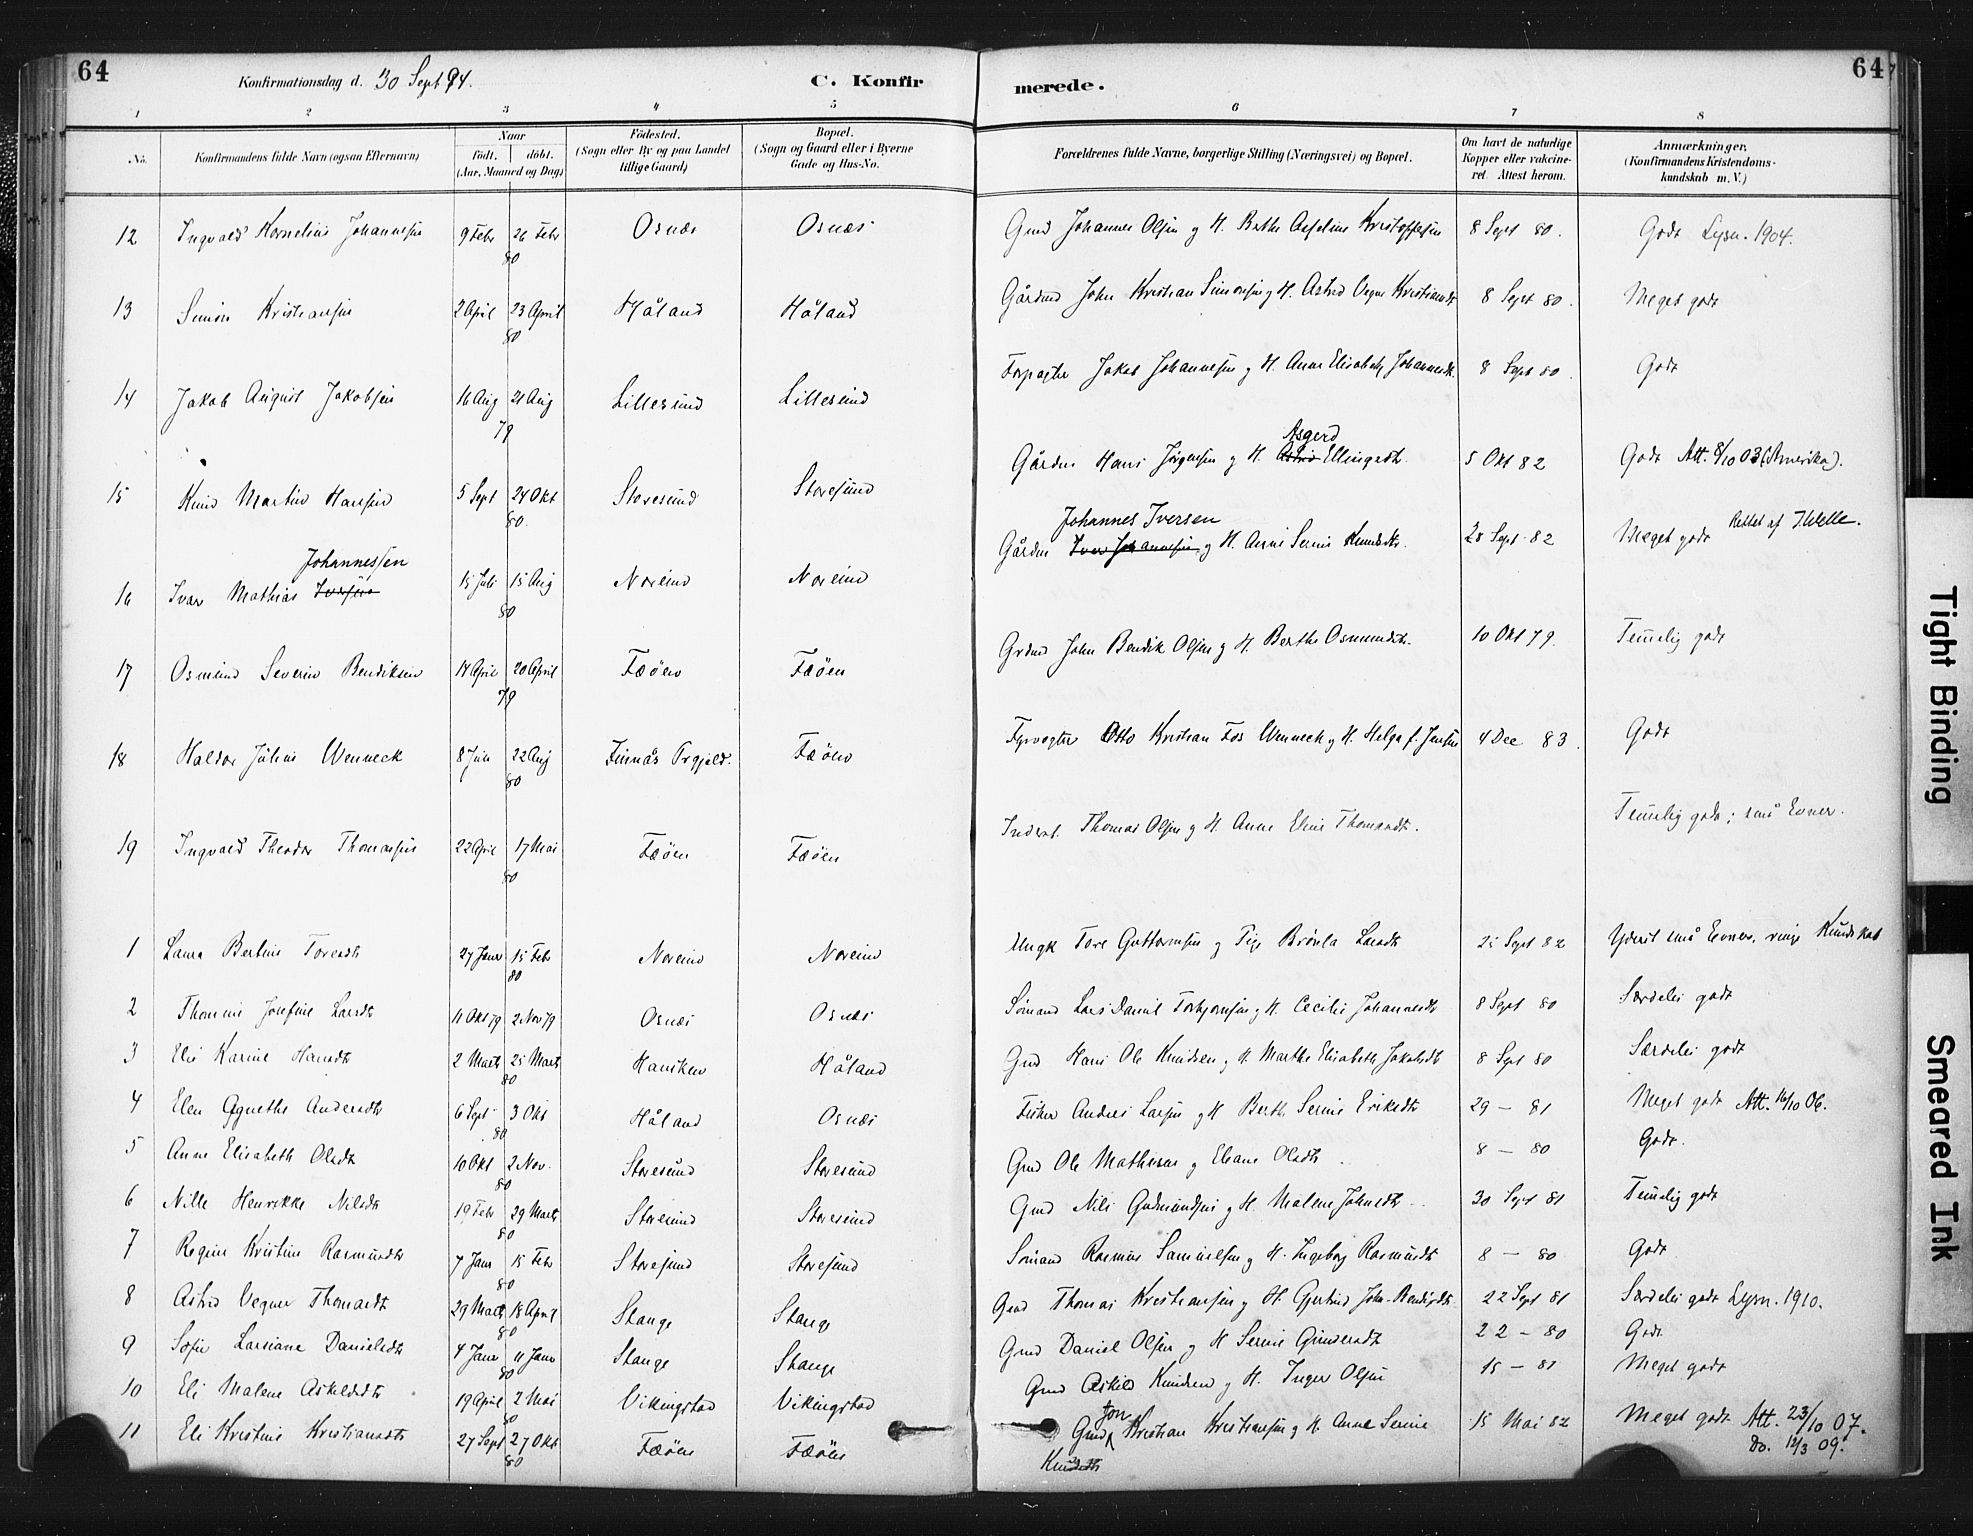 64
Konfirmationsdag d. 30 Sept 94.
C. Konfir
merede.
64
1 2 3 4 5 6 7 8
No.
Konfirmandens fulde Navn (ogsaa Efternavn)
Naar
födt. döbt.
(Aar, Maaned og Dag)
Födested.
(Sogn eller By og paa Landet
tillige Gaard)
Bopæl.
(Sogn og Gaard eller i Byerne
Gade og Hus-No.
Forældrenes fulde Navne, borgerlige Stilling (Næringsvei) og Bopæl.
Om havt de naturlige
Kopper eller vakcine-
ret. Attest herom.
Anmærkninger.
(Konfirmandens Kristendoms-
kundskab m. V.)
12 Ingvald Kornelius Johannesen 9 Febr 26 Febr 80 Osnæs Osnæs Gmd Johannes Olsen og H. Berthe Kristoffersen 8 Sept 80. Godt Lysn. 1904.
13 Simon Kristiansen 2 April 23 April 80 Håland Håland Gårdmd John Kristian Simonsen og H. Astrid Vegne Kristiansdt 8 Sept 80. Meget godt
14 Jakob August Jakobsen 16 Aug 21 Aug 79 Lillesund Lillesund Forpagter Jakob Johannesen og H. Anne Elisabeth Johannesdt. 8 Sept 80. Godt
15 Knud Martin Hansen 5 Sept 24 Okt 80. Storesund Storesund Gårdm Hans Jörgensen og H. Astrid Asgerd Ellingsdt. 5 Okt 82 Godt Att. 8/10 03 (Amerika).
16 Ivar Mathias Iversen Johannessen 15 Juli 15 Aug 80 Noreind Noreind Gårdm Iver Johannesen Johannes Iversen og H. Anne Serine Knudsdt. 28 Sept 82 Meget godt Rettet af J. Welle.
17 Osmund Severin Bendiksen 14 April 20 April 79 Fæöen Fæöen Grdmd John Bendik Olsen og H. Berthe Osmundsdt. 10 Okt 79. Temelig godt
18 Haldor Julius Wenneck 8 Juli 22 Aug 80 Finnås Prgjeld. Fæöen Fyrvogter Otto Kristian Fos Wenneck og H. Helga f. Jensen 4 Dec 83. Godt
19 Ingvald Theodor Thomasen 22 April 17 Mai 80 Fæöen Fæöen Inderst. Thomas Olsen og H. Anne Eline Thomasdt. Temelig godt; små Evner.
1 Laura Bertine Toresdt 27 Janr 15 Febr 80 Noreind Noreind Ungk Tore Guttormsen og Pige Brönla Larsdt 25 Sept 82 Yderst små Evner, ringe Kundskab
2 Thomine Josefine Larsdt 11 Okt 79 2 Nov 79 Osnæs Osnæs Sömand Lars Daniel Torbjornsen og H. Cecilie Johannesdt 8 Sept 80 Særdeles godt
3 Elie Karine Hansdt 2 Marts 25 Marts 80 Hausken Håland Gmd Hans Ole Knudsen og H Marthe Elisabeth Jakobsdt 8 Sept 80 Særdeles godt
4 Elen Agnethe Andersdt 6 Sept 3 Okt 80 Håland Osnæs Fisker Andres Larsen og H Berthe Serine Eriksdt 29 — 81 Meget godt Att. 16/10 06.
5 Anne Elisabeth Olsdt 10 Okt 2 Nov. 80 Storesund Storesund Gmd Ole Mathisen og Eliane Olsdt. 8 — 80 Godt.
6 Nille Henrikke Nilsdt 19 Febr 29 Marts 80 Storesund Storesund Gmd Nils Gudmundsen og H Malene Johnsdt.. 30 Sept 81 Temelig godt
7 Regine Kristine Rasmusdt 7 Janr 15 Febr 80 Storesund Storesund Sömand Rasmus Samuelsen og H. Ingeborg Rasmusdt 8 — 80 Godt
8 Astrid Vegner Thomasdt 29 Marts 18 April 80 Stange Stange Gmd Thomas Kristiansen og H. Gjertrud John-Bendiksdt. 22 Sept 81 Særdeles godt Lysn. 1910.
9 Sofie Larsiane Danielsdt 4 Janr 11 Janr 80 Stange Stange Gmd Daniel Olsen og H Serine Gunversdt 22 — 80 Godt
10 Eli Malene Askildsdt 19 April 2 Mai 80 Vikingstad Vikingstad Gmd Askild Knudsen og H. Inger Olsen 15 — 81 Meget godt
11 Eli Kristine Kristiansdt 27 Sept 27 Okt 80 Fæöen Fæöen Gmd Jon Kristian Kristiansen og H. Anne Serine Knudsdt 15 Mai 82 Meget godt Att. 23/10 07.
do. 12/3 09.
Tight Binding
Smeared Ink